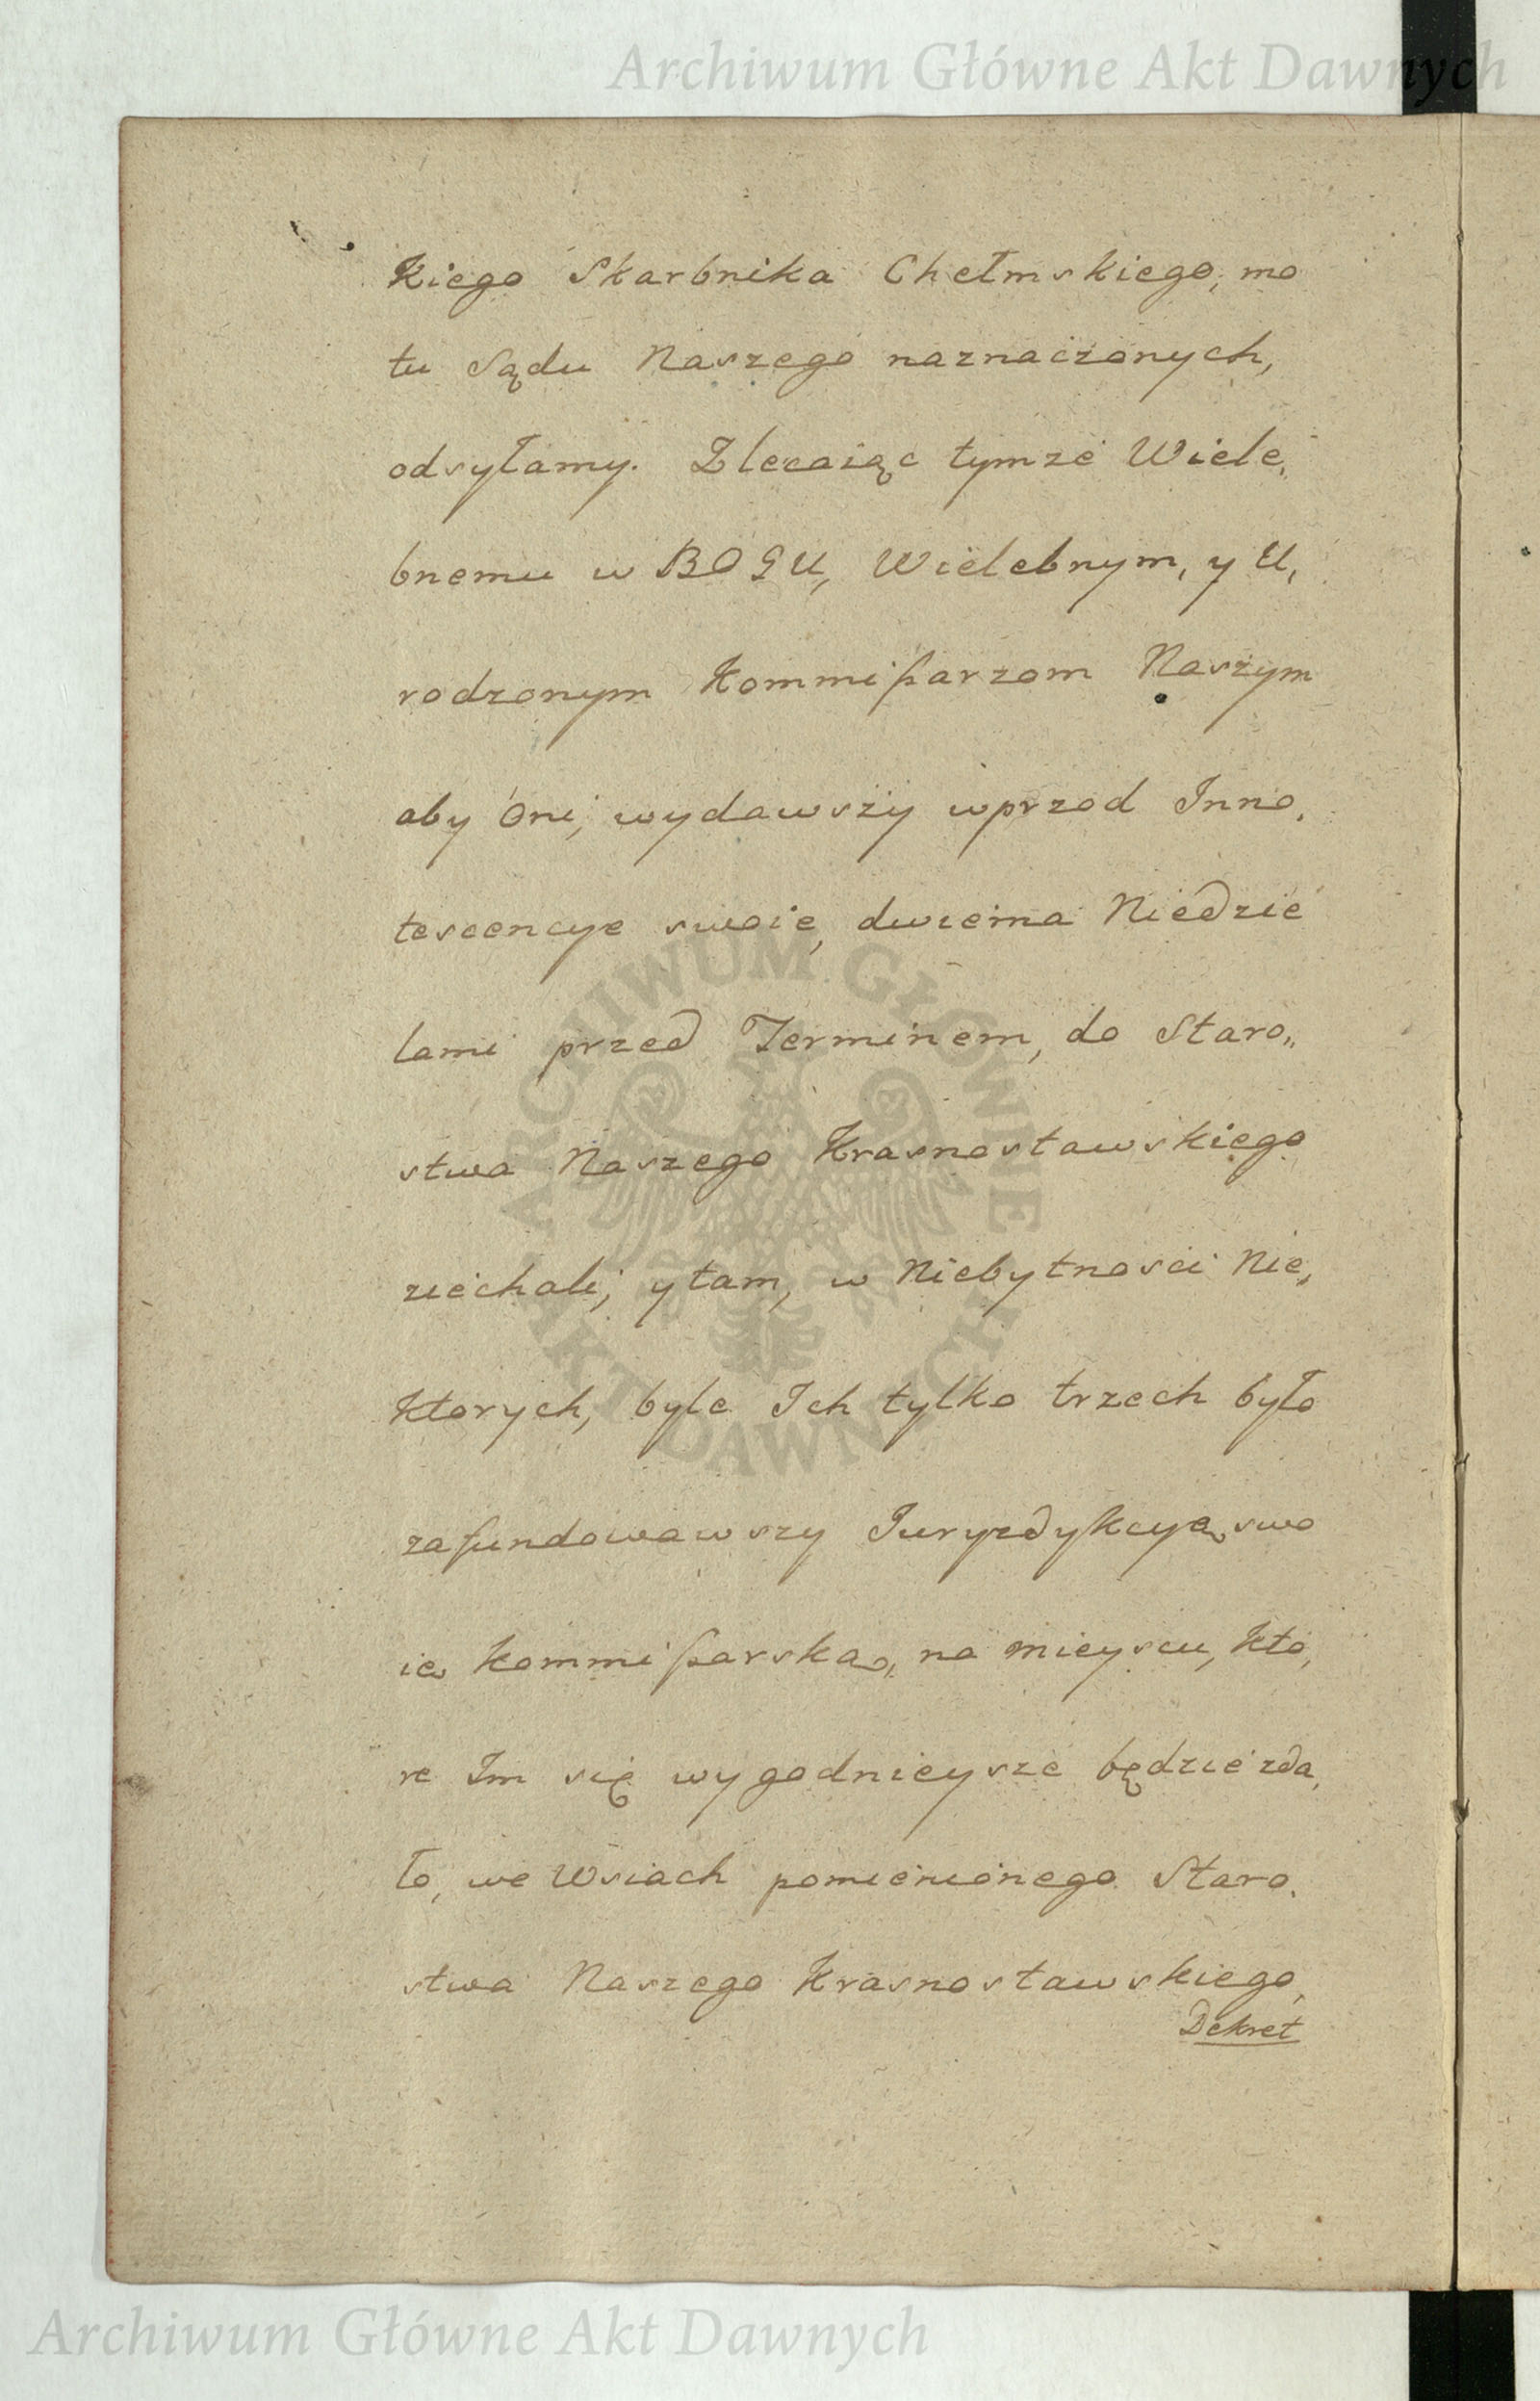 Archiwum Główne Akt Dawnych
kiego Skarbnika Chełmskiego, mo
tu Sądu Naszego naznaczonych,
odsyłamy. Zlecaiąc tymże Wiele,
bnemu w BOGU, Wielebnym, y U,
rodzonym Kommißarzom Naszym
aby Oni, wydawszy wprzod Inno,
tescencye swoie, dwiema Niedzie
lami przed Terminem, do Staro,,
stwa Naszego Krasnostawskiego
ziechali, y tam, w Niebytnosci Nie,
ktorych, byle Ich tylko trzech było
zafundowawszy Juryzdykcyę swo
ię Kommißarską, na mieyscu, kto,
re Im się wygodnieysze będzie zda,
ło, we Wsiach pomienionego Staro,
stwa Naszego Krasnostawskiego,
Dekret
ARCHIWUM GŁÓWNE AKT DAWNYCH
Archiwum Główne Akt Dawnych